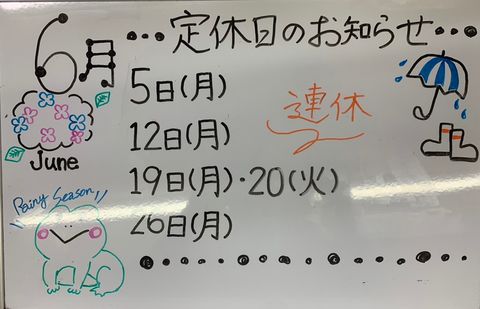 6月 定休日のお知らせ
5日(月)
12日(月)
連休
19日(月)・20(火)
26日(月)
June
Rainy Season